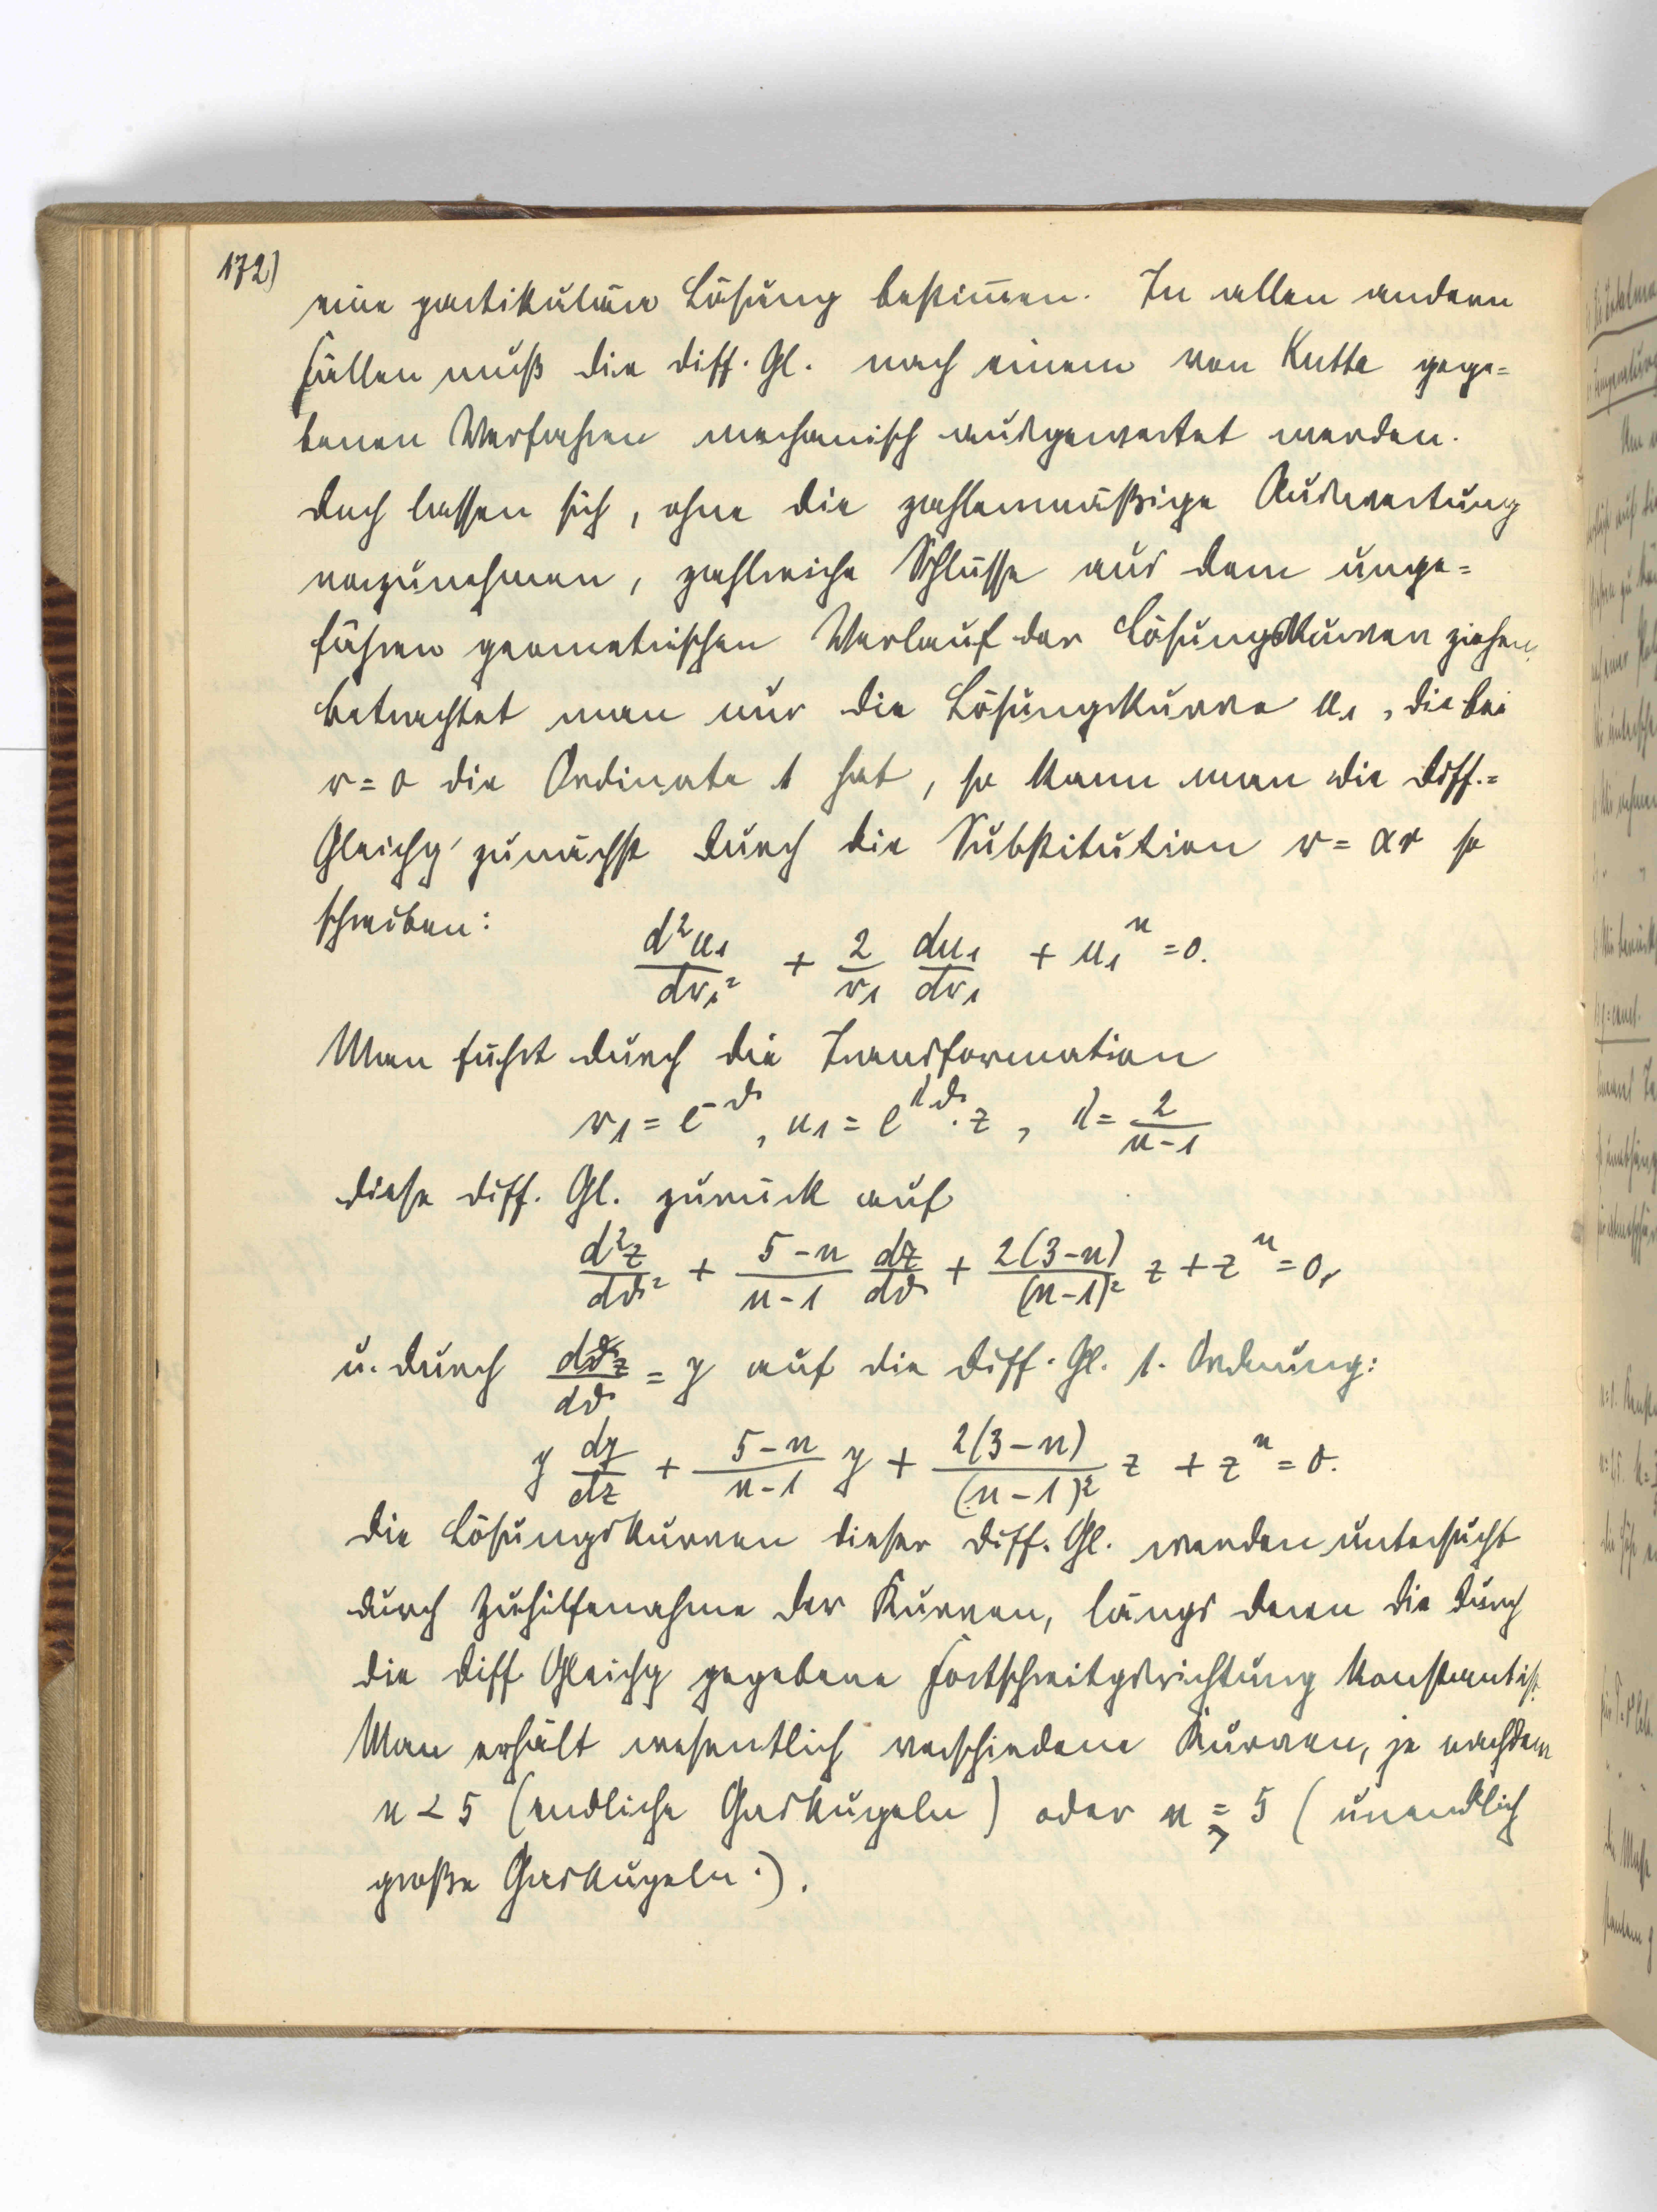 172)
eine partikuläre Lösung bestim̄en. In allen andern
Fällen muß die Diff. Gl. nach einem von Kutta gege=
benen Verfahren mechanisch ausgewertet werden.
Doch lassen sich, ohne die zahlenmäßige Auswertung
vorzunehmen, zahlreiche Schlüsse aus dem unge=
fähren geometrischen Verlauf der Lösungskurven ziehen.
Betrachtet man nur die Lösungskurve u₁, die bei
r = 0 die Ordinate 1 hat, so kann man die Diff.=
Gleichg zunächst durch die Substitution r = αr so
schreiben:
d²u₁/dr₁² + 2/r₁ du₁/dr₁ + u₁ⁿ = 0.
Man führt durch die Transformation
r₁ = e^-ϑ, u₁ = e^λϑ · z, λ = 2/(n-1)
diese Diff. Gl. zurück auf
d²z/dϑ² + (5-n)/(n-1) dz/dϑ + 2(3-n)/(n-1)² z + zⁿ = 0,
u. durch dz/dϑ = y auf die Diff. Gl. 1. Ordnung:
y dy/dz + (5-n)/(n-1) y + 2(3-n)/(n-1)² z + zⁿ = 0.
Die Lösungskurven dieser Diff. Gl. werden untersucht
durch Zuhilfenahme der Kurven, längs deren die durch
die Diff. Gleichg gegebene Fortschreitgsrichtung konstant ist.
Man erhält wesentlich verschiedene Kurven, je nachdem
n < 5 (endliche Gaskugeln) oder n ≧ 5 (unendlich
große Gaskugeln.).